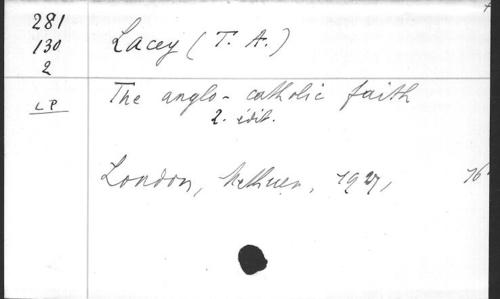 281
130
2
LP
Lacey (T. A.)
The anglo-catholic faith
2. édit.
London, Methuen, 1927, 16